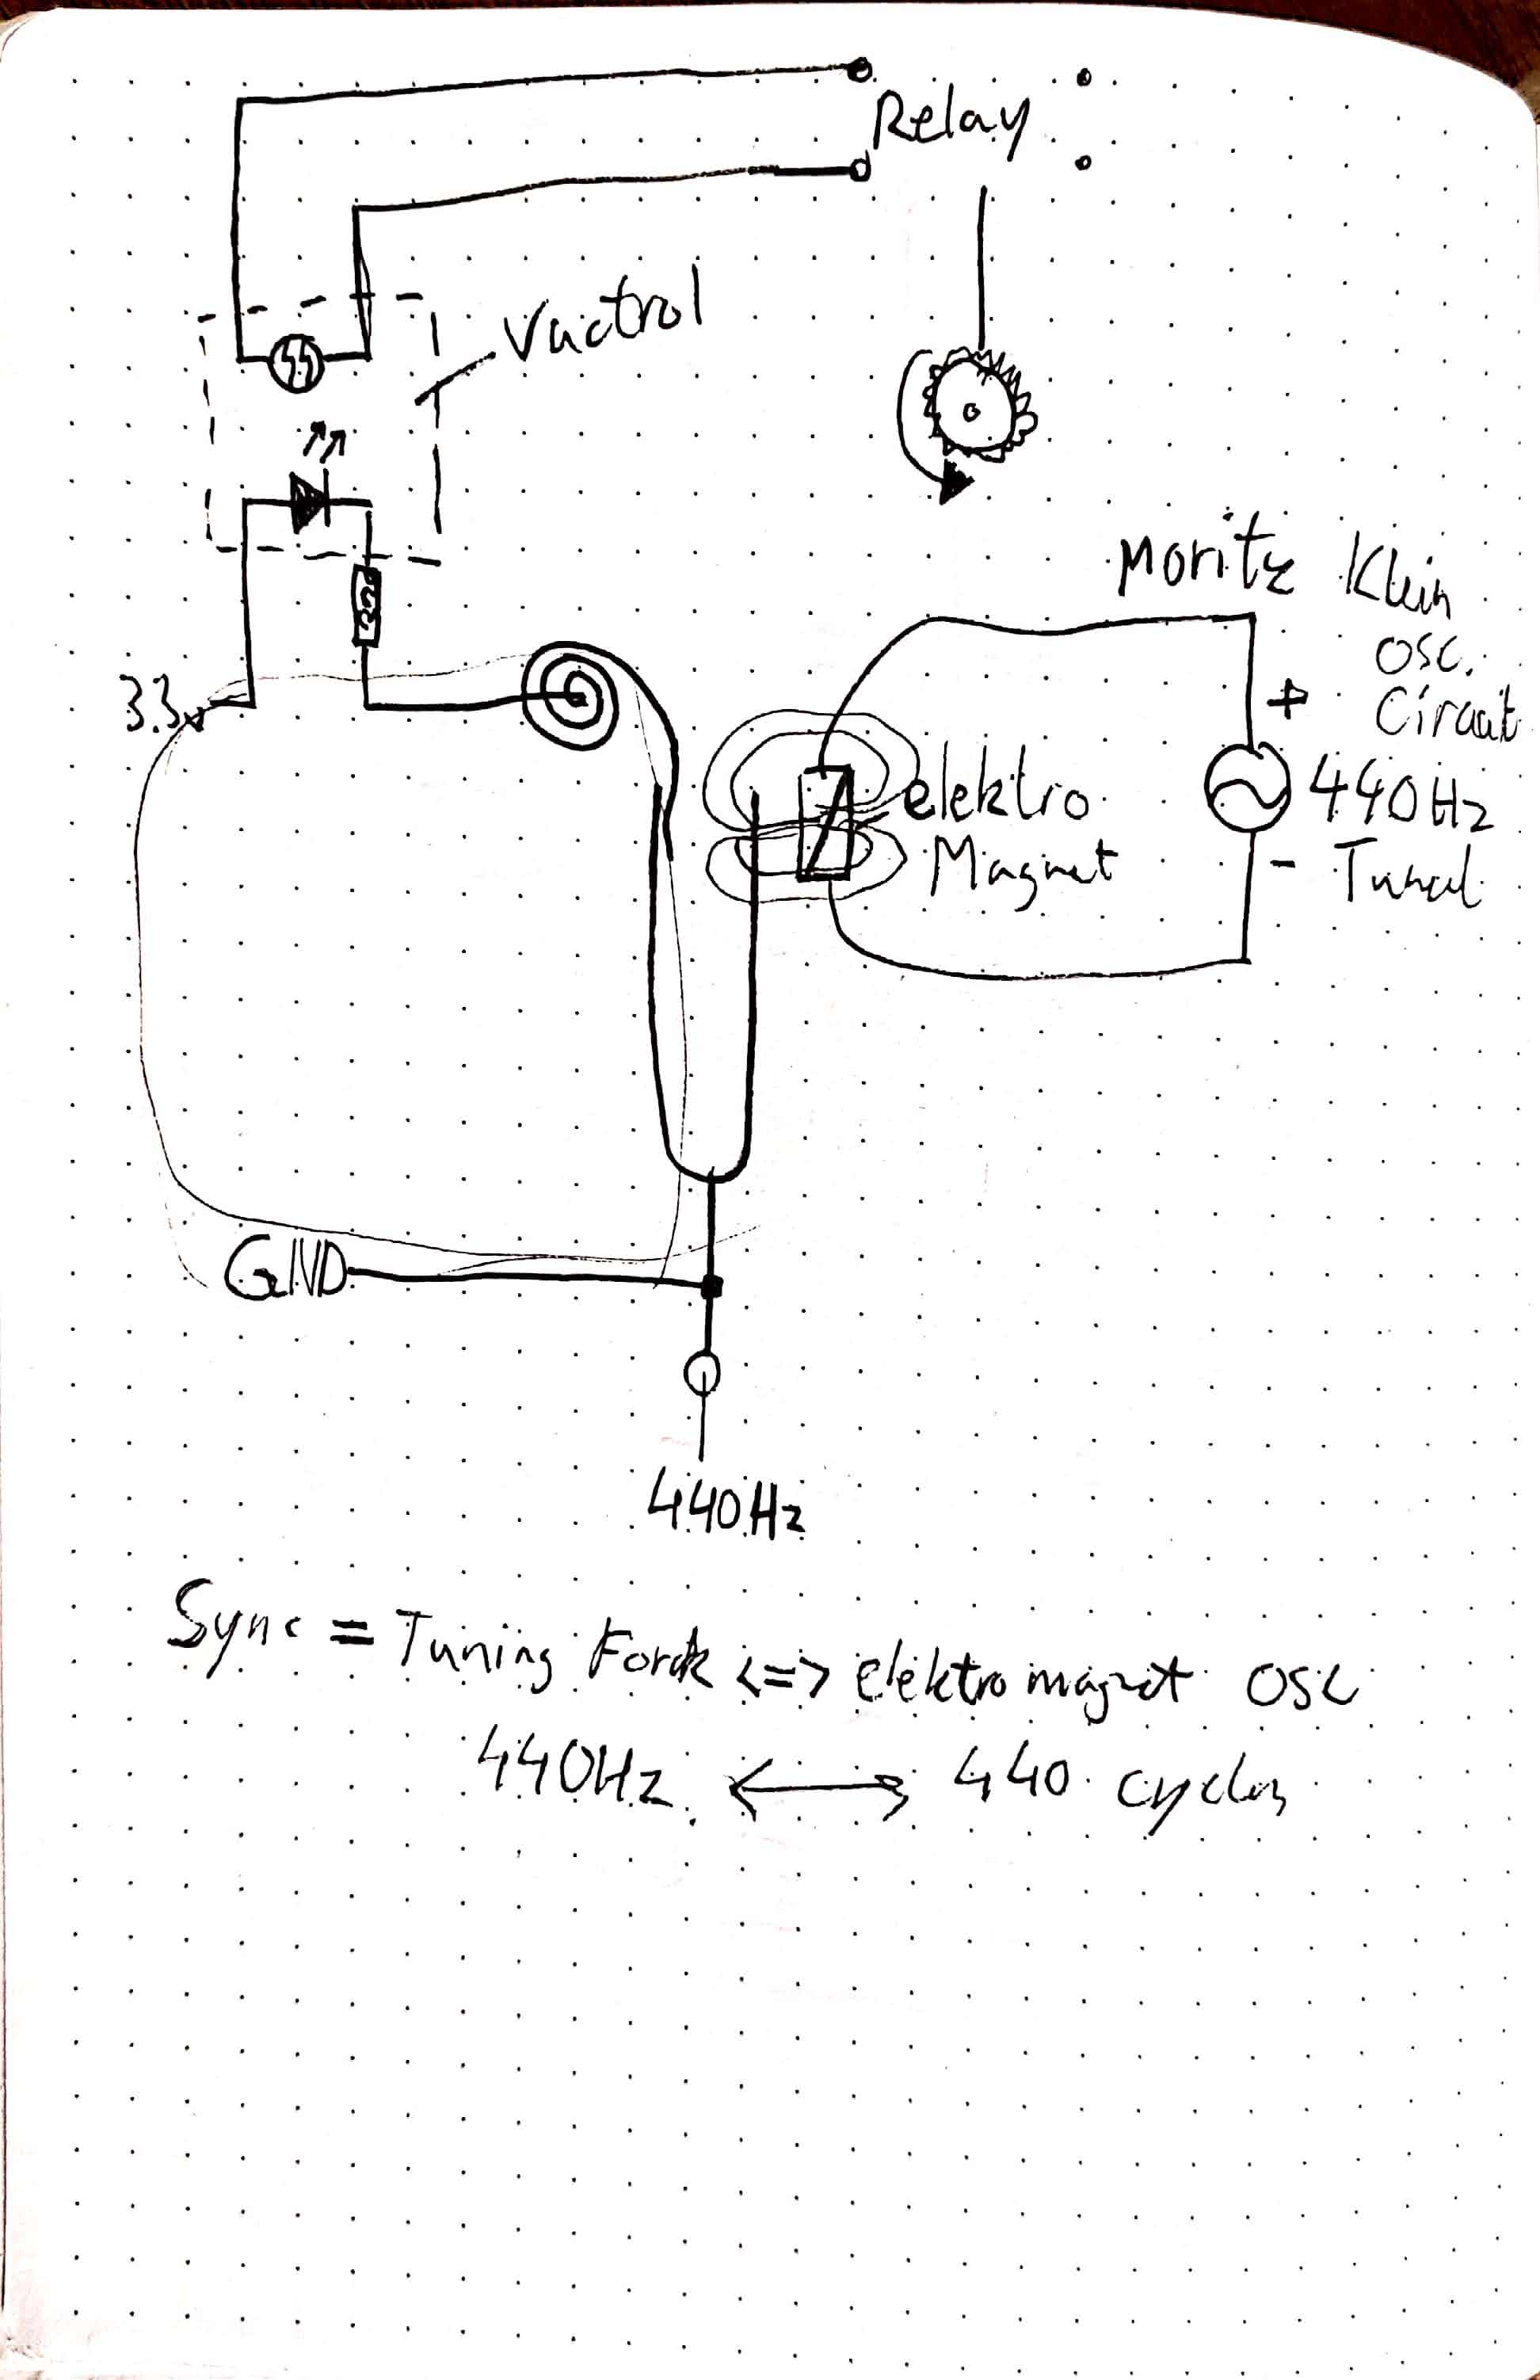 Relay
Vactrol
Moritz Klein
osc.
Circuit
+
440Hz
-
Tuned
3.3v
elektro
Magnet
GND
440Hz
Sync = Tuning Fork <=> elektromagnet OSC
440Hz. <-> 440 cycles